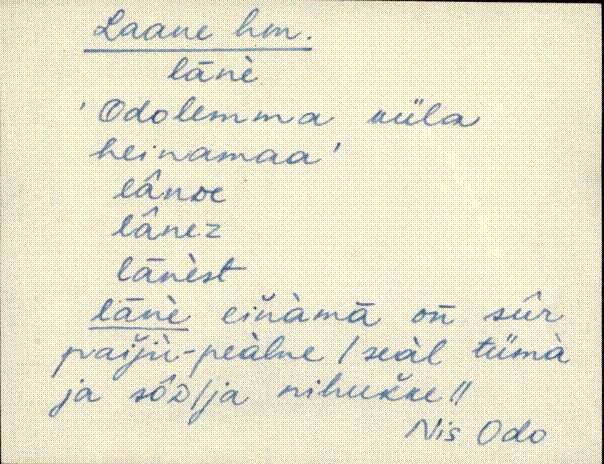 Laane hm.
lānè
'Odolemma küla
heinamaa'
lânoe
lânez
lānèst
lānè eiňàmā on̄ sûr
paĭjù-peàlne / seàl tümà
ja sôo / ja nihuk̆ke //
Nis Odo